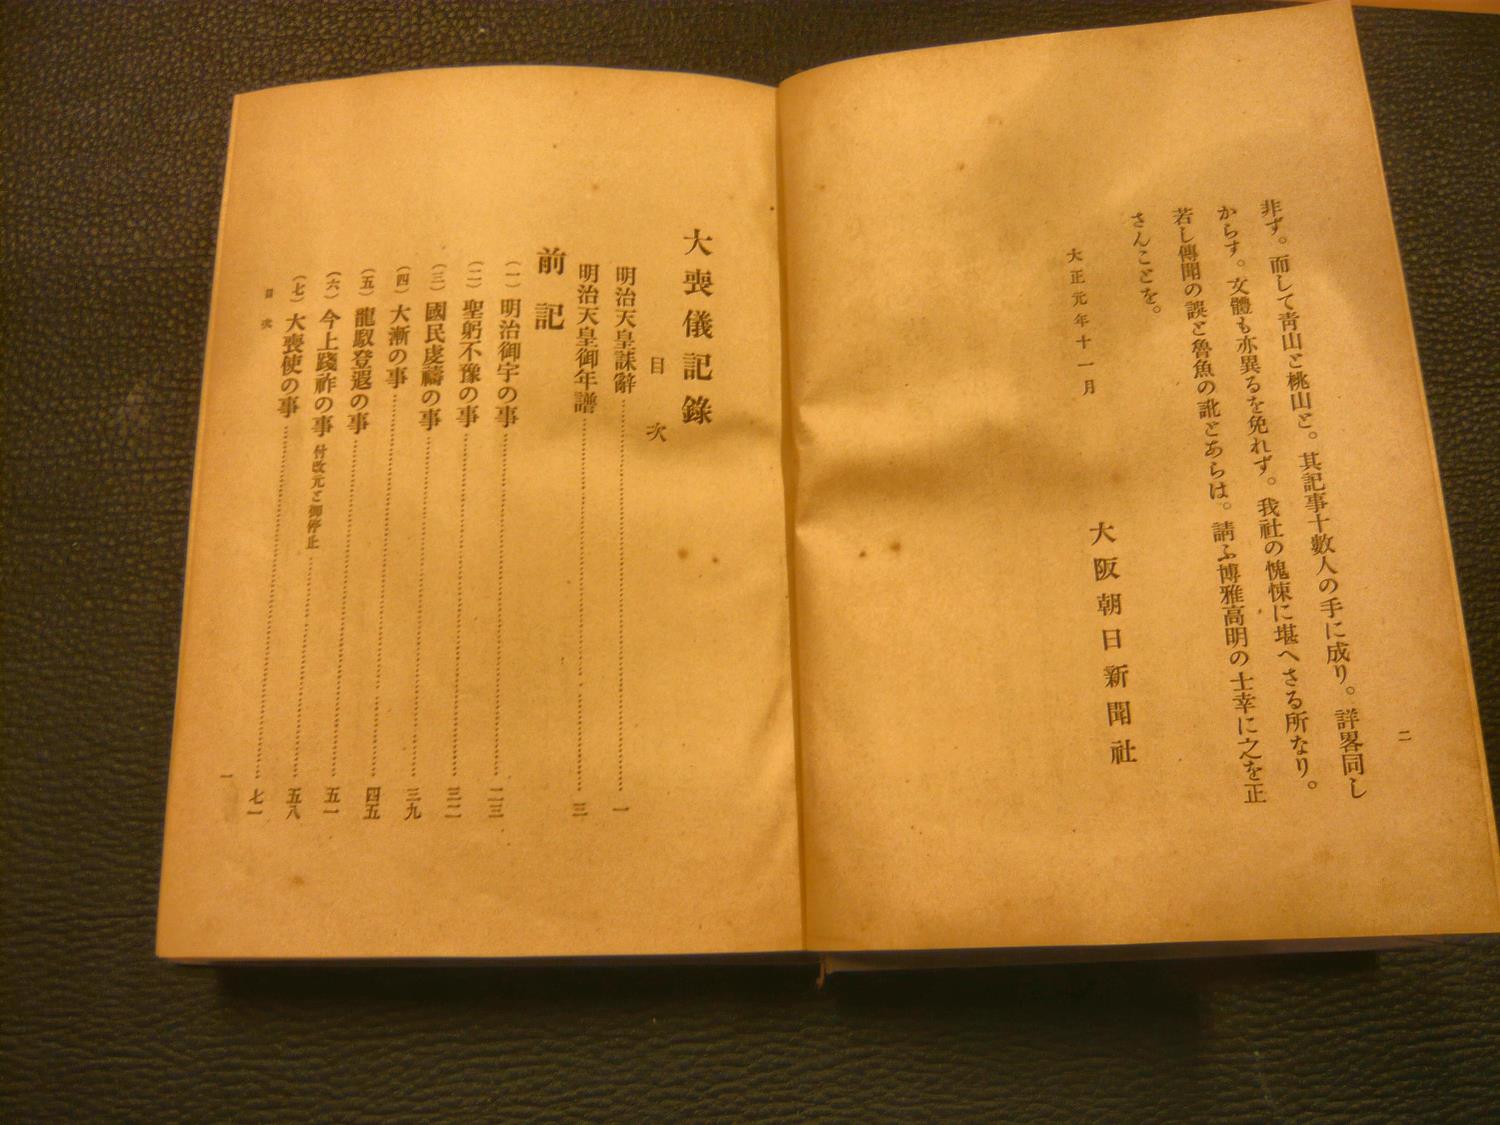 二
非ず。而して青山と桃山と。其記事十數人の手に成り。詳畧同し
からす。文體も亦異るを免れず。我社の愧悚に堪へさる所なり。
若し傳聞の誤と魯魚の訛とあらは。請ふ博雅高明の士幸に之を正
さんことを。
大正元年十一月
大阪朝日新聞社
大喪儀記錄
目次
明治天皇誄辭……一
明治天皇御年譜……三
前記
(一) 明治御宇の事……二三
(二) 聖躬不豫の事……三二
(三) 國民虔禱の事……三九
(四) 大漸の事……四五
(五) 龍馭登遐の事……五一
(六) 今上踐祚の事 付改元と御停止……五八
(七) 大喪使の事……七一
目次
一